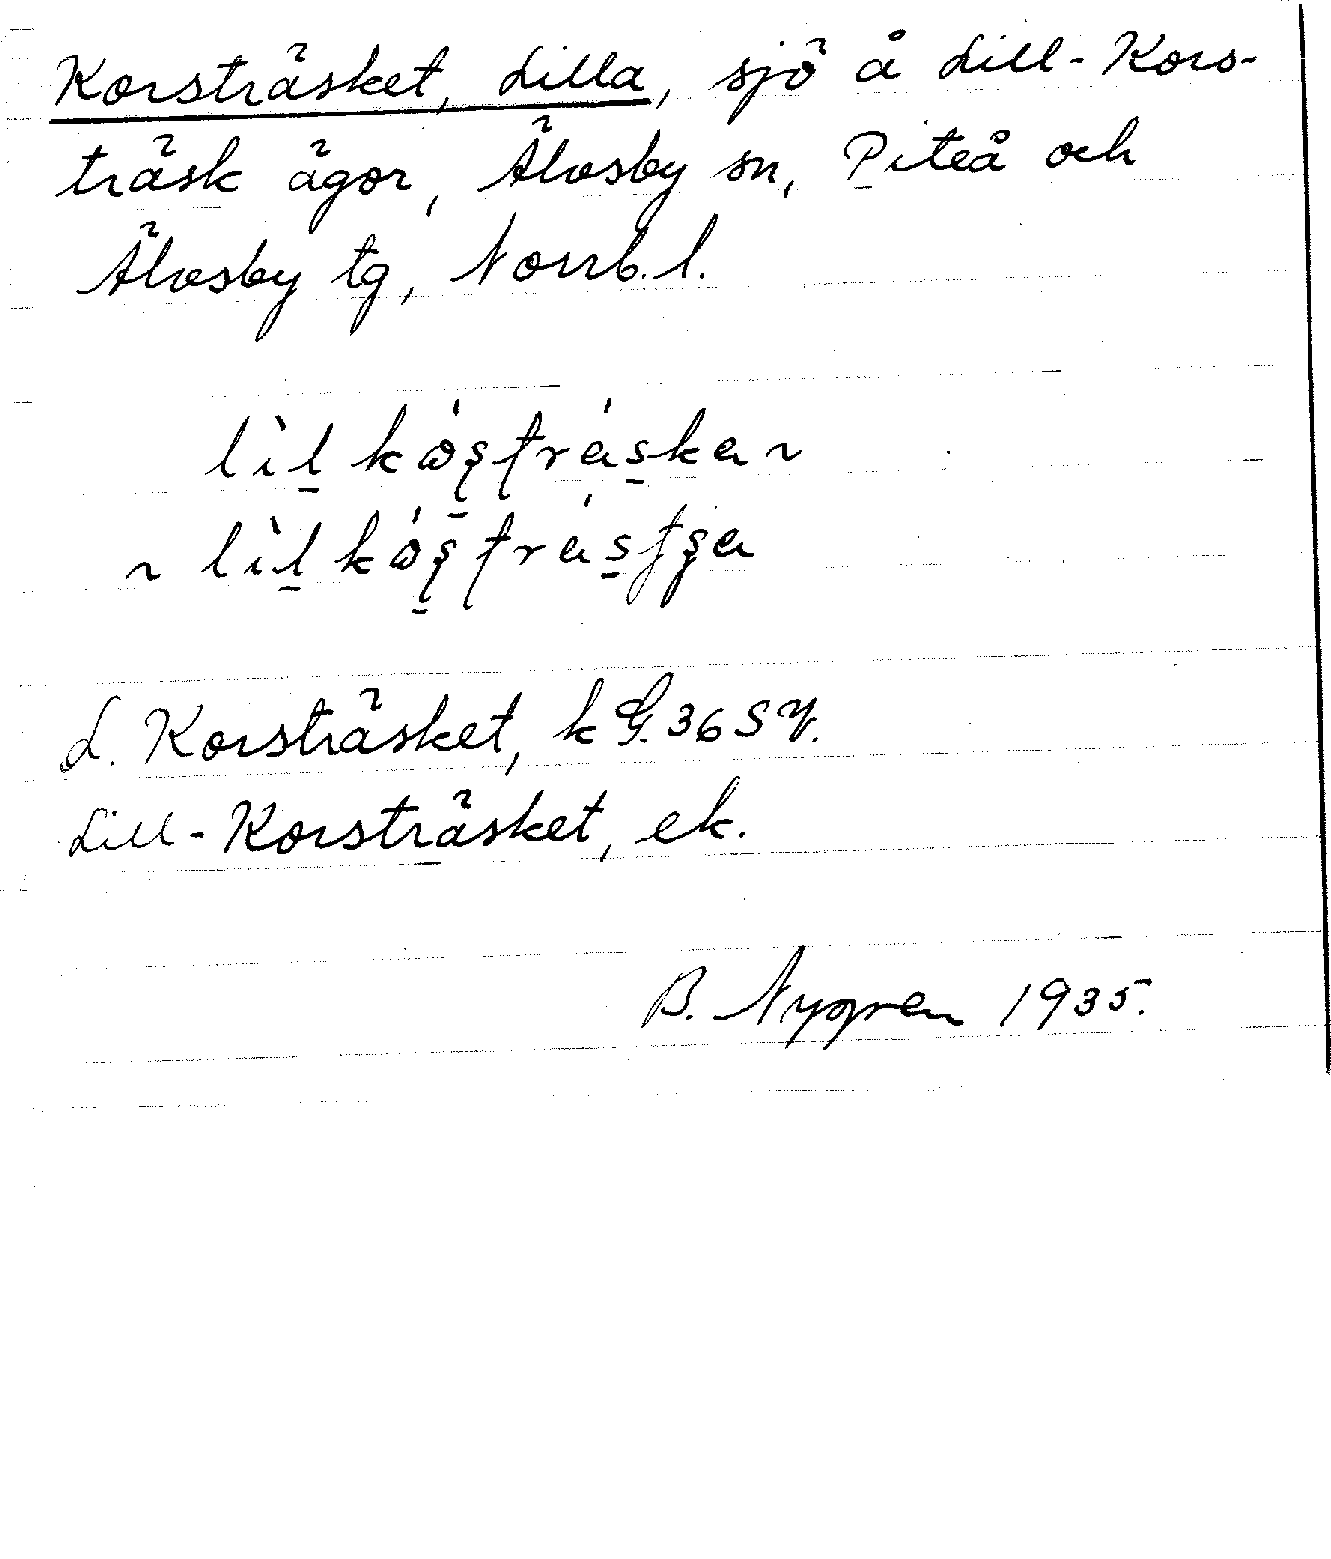 Korsträsket, Lilla, sjö å Lill-Kors-
träsk ägor, Älvsby sn, Piteå och
Älvsby tg, Norrb. l.
L. Korsträsket, k G. 36 SV.
Lill-Korsträsket, ek.
B. Nygren 1935.